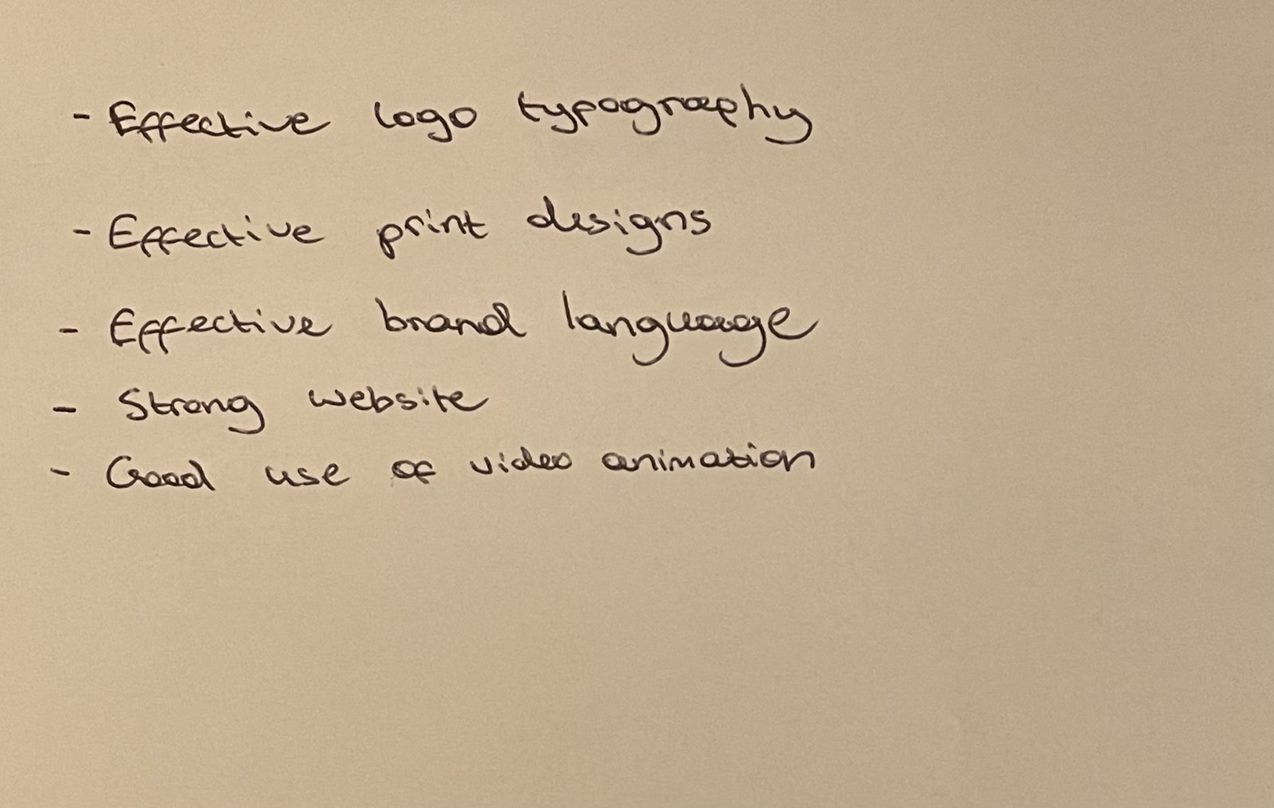 - Effective logo typography
- Effective print designs
- Effective brand language
- Strong website
- Good use of video animation